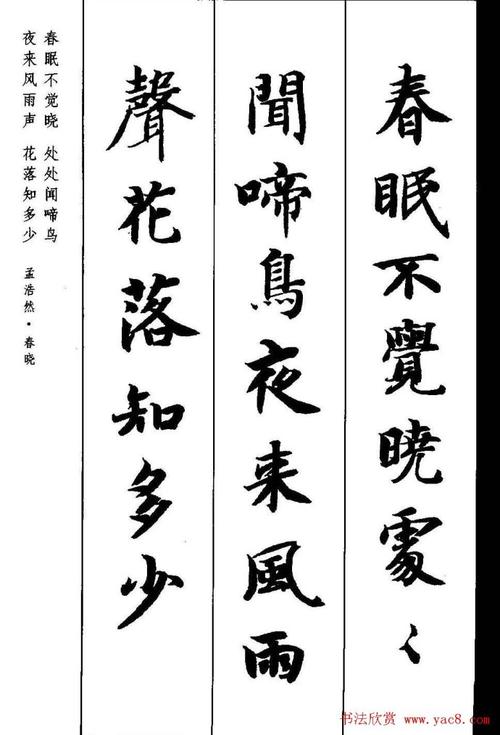 春眠不覺曉處〻
聞啼鳥夜来風雨
聲花落知多少
春眠不觉晓 处处闻啼鸟
夜来风雨声 花落知多少 孟浩然·春晓
书法欣赏 www.yac8.com